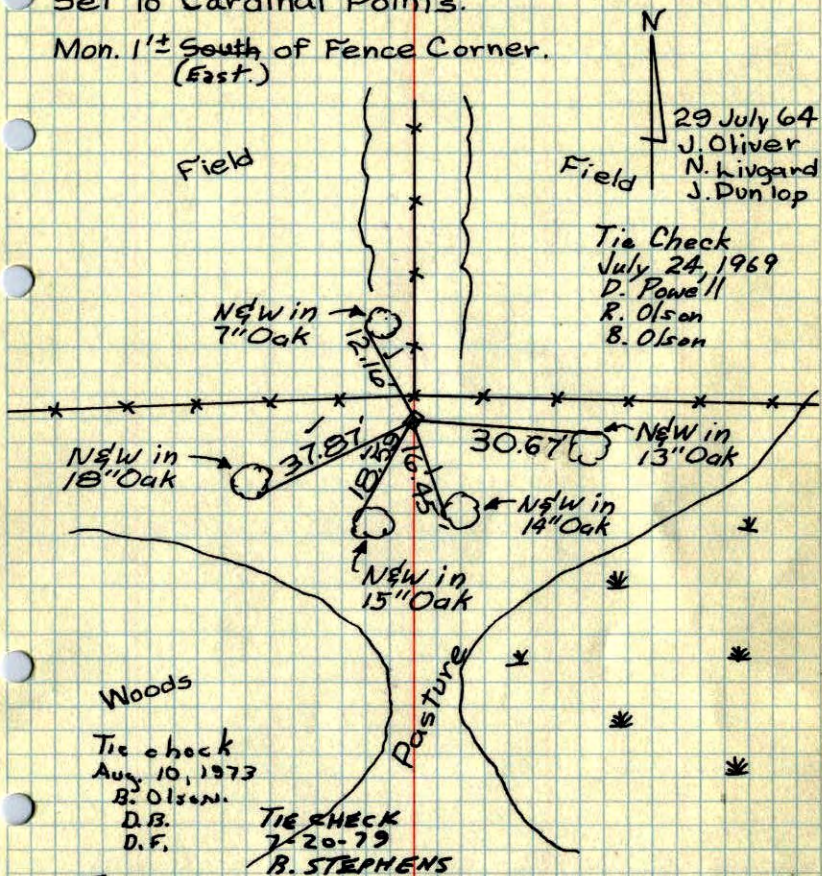 Set To Cardinal Points.
Mon. 1'± South of Fence Corner.
(East.)
N
29 July 64
J. Oliver
N. Livgard
J. Dunlop
Field
Field
Tie Check
July 24, 1969
D. Powell
R. Olson
B. Olson
N&W in
7" Oak
12.16'
N&W in
18" Oak
37.87'
18.59
16.45'
30.67
N&W in
13" Oak
N&W in
14" Oak
N&W in
15" Oak
Woods
Pasture
Tie check
Aug. 10, 1973
B. Olson.
D.B.
D.F.
TIE CHECK
7-20-79
B. STEPHENS